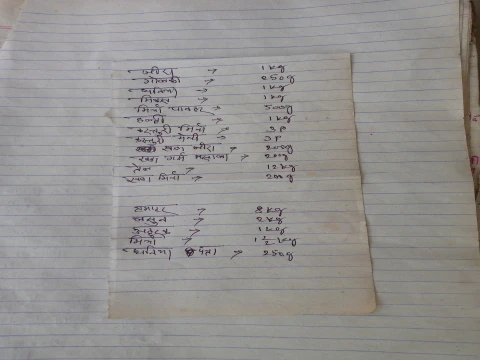 जीरा → 1 kg
गोलकी → 250g
धनिया → 1 kg
मिक्स → 1 kg
मिर्चा पावडर → 500g
हल्दी → 1 kg
कस्तूरी मिर्ची → 3P
कस्तूरी मेथी → 3P
खड़ा जीरा → 200g
खड़ा गर्म मसाला → 200g
तेल → 12 kg
खड़ा मिर्चा → 200g
टमाटर → 8 kg
लहसुन → 2 kg
अदरक → 1 kg
मिर्चा → 1 1/2 kg
धनिया पत्ता → 250g